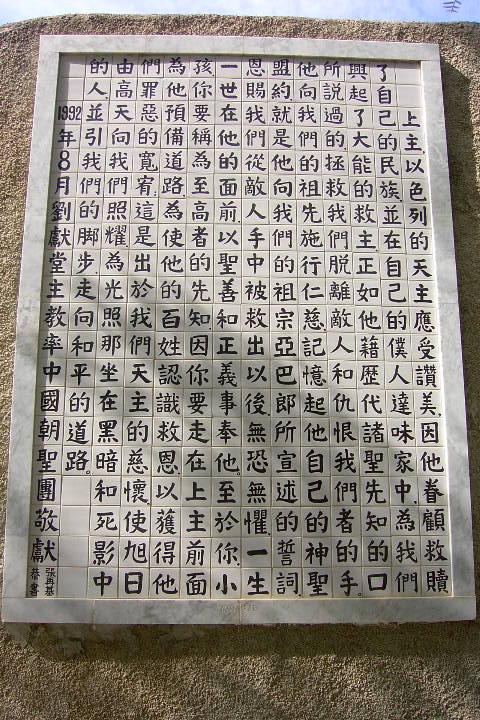 上主,以色列的天主應受讚美,因他眷顧救贖
了自己的民族,並在自己的僕人達味家中,為我們
興起了大能的救主,正如他藉歷代諸聖先知的口
所說過的,拯救我們脫離敵人和仇恨我們者的手。
他向我們的祖先施行仁慈,記憶起他自己的神聖
盟約就是他向我們的祖宗亞巴郎所宣述的誓詞。
恩賜我們從敵人手中被救出以後,無恐無懼,一生
一世在他的面前,以聖善和正義事奉他。至於你小
孩你要稱為至高者的先知因你要走在上主前面
為他預備道路,為使他的百姓認識救恩,以獲得他
們罪惡的寬宥,這是出於我們天主的慈懷,使旭日
由高天向我們照耀,為光照那坐在黑暗和死影中
的人,並引我們的脚步,走向和平的道路。
1992年8月劉獻堂主教率中國朝聖團敬獻
張再基
恭書